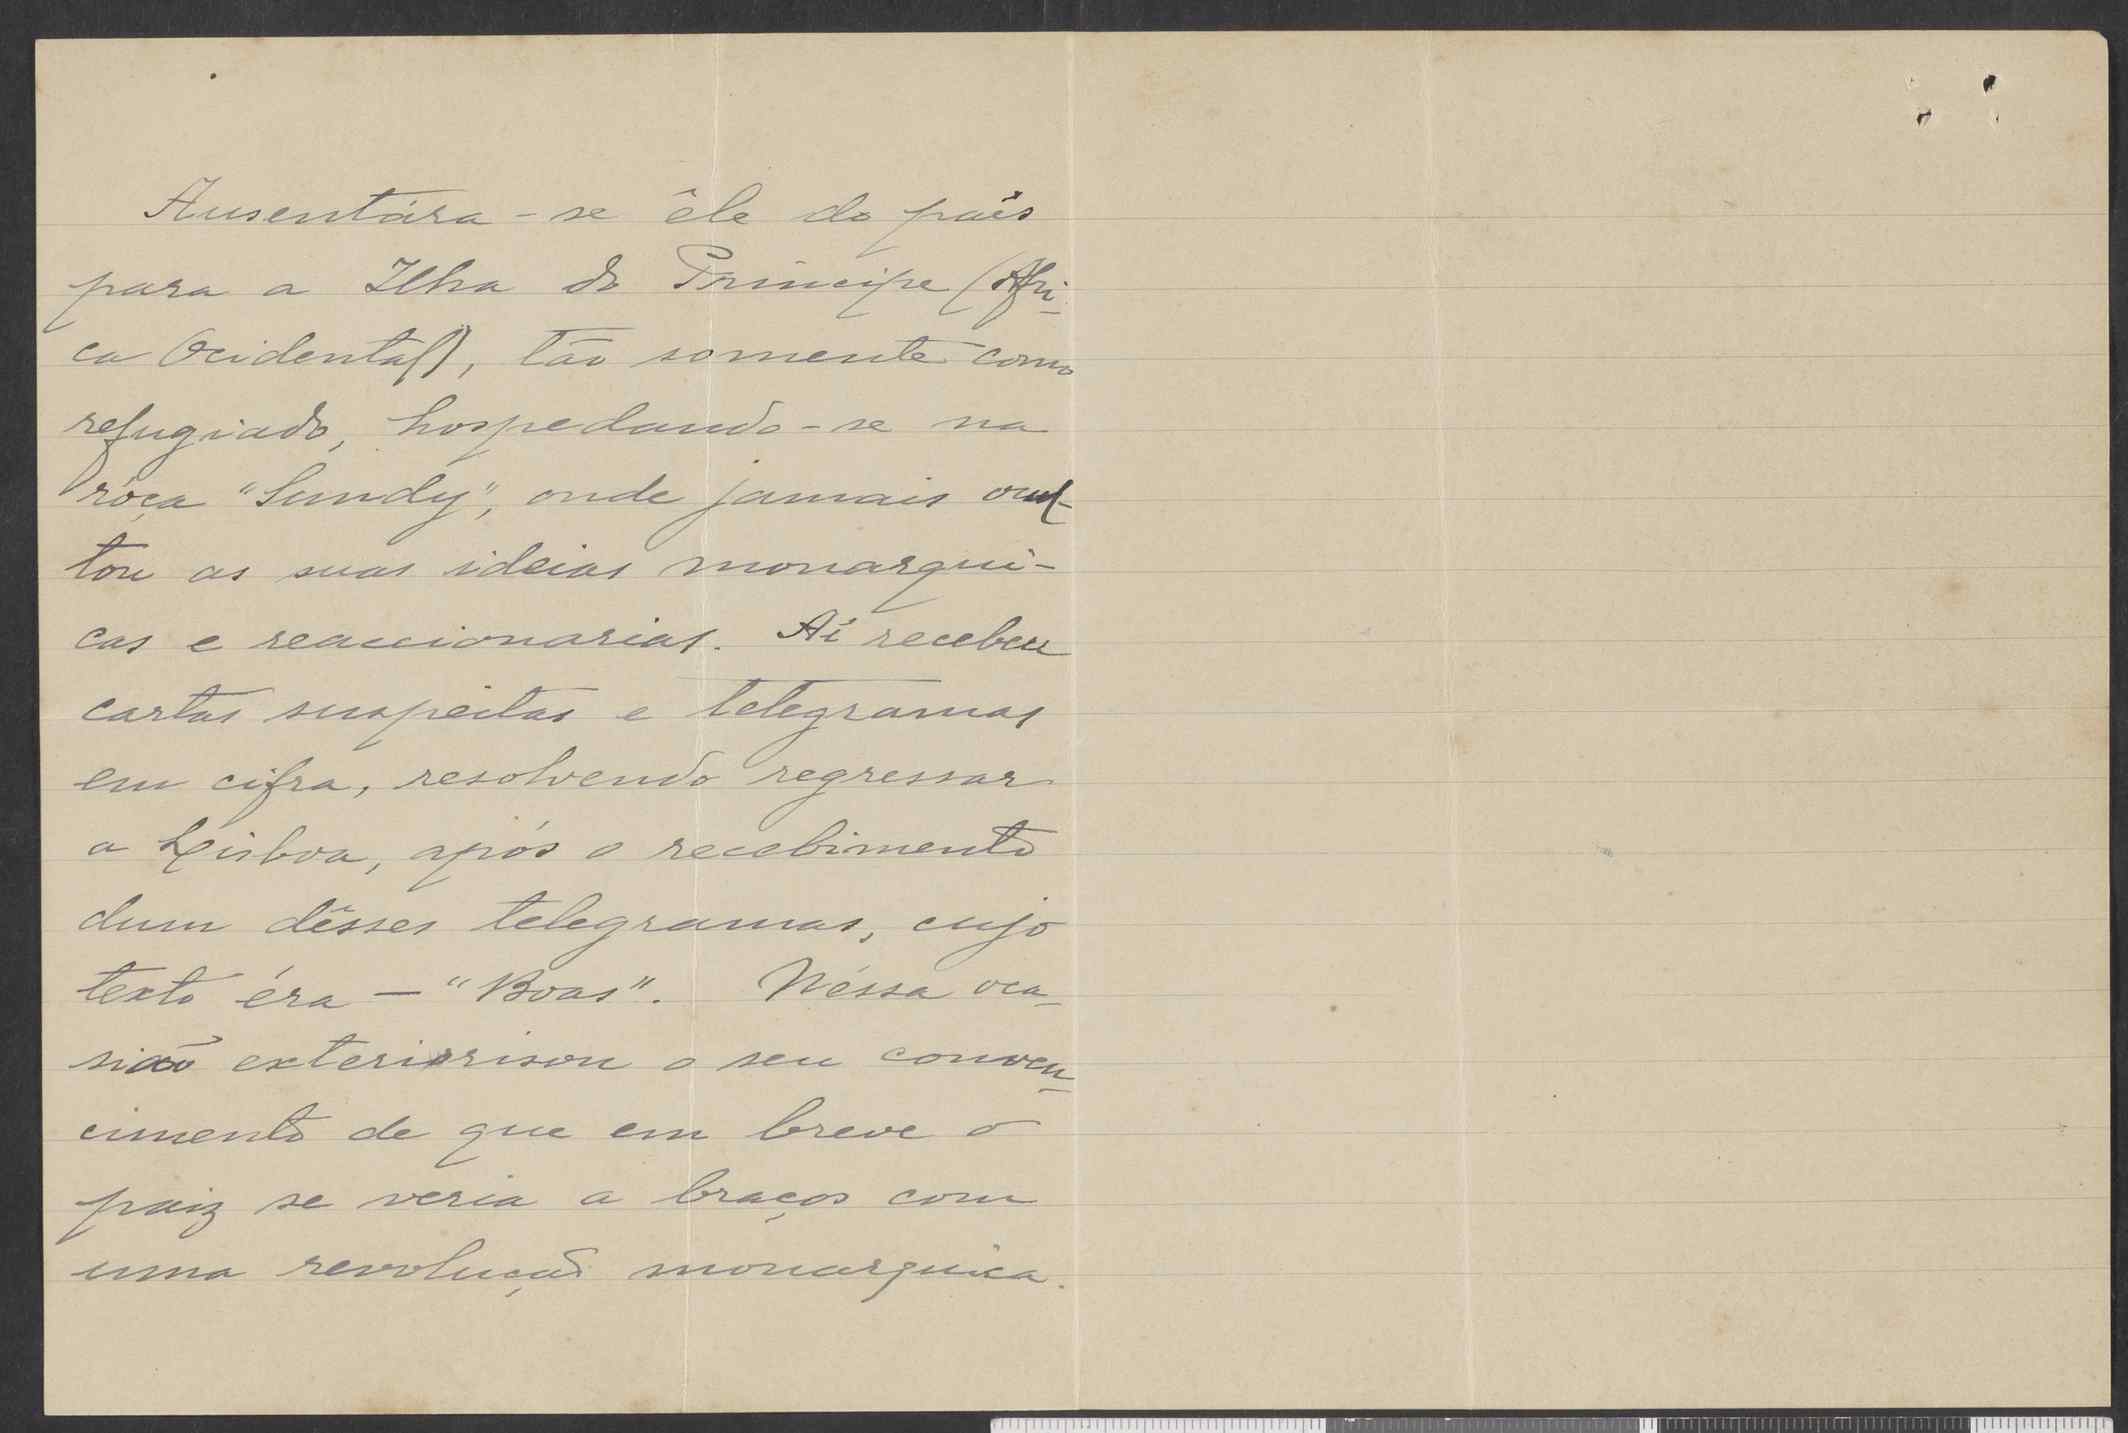 Ausentára-se êle do país
para a Ilha do Principe (Afri-
ca Ocidental), tão somente como
refugiado, hospedando-se na
róça "Sundy", onde jamais ocul-
tou as suas ideias monarqui-
cas e reaccionarias. Aí recebeu
cartas suspeitas e telegramas
em cifra, resolvendo regressar
a Lisboa, após o recebimento
dum dêsses telegramas, cujo
texto éra — "Boas". Néssa oca-
sião exteriorisou o seu conven-
cimento de que em breve o
paiz se veria a braços com
uma revolução monarquica.